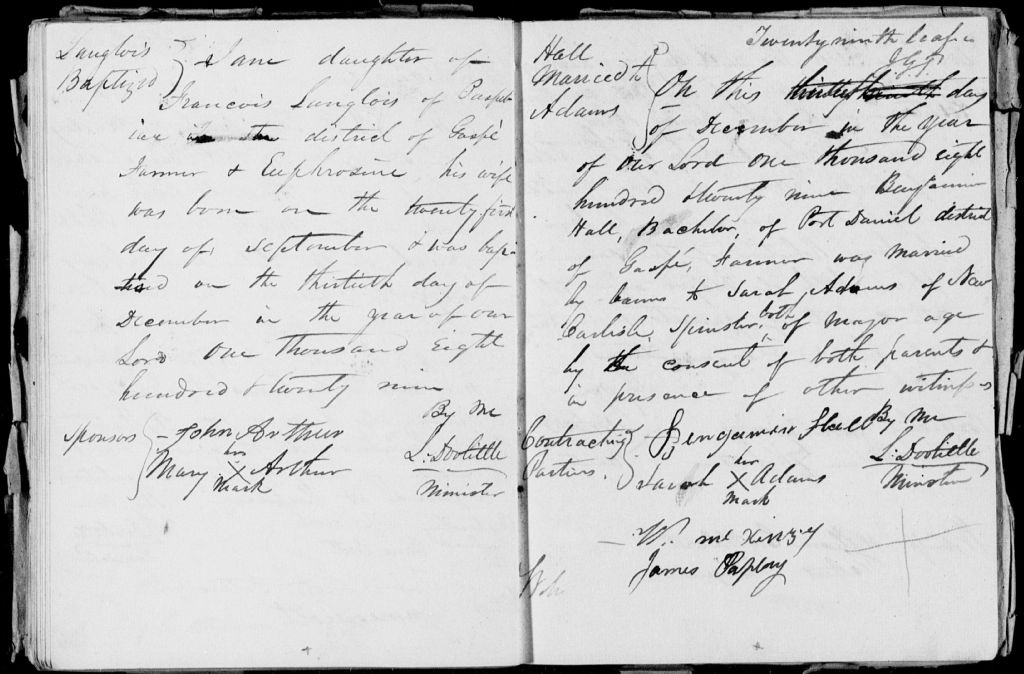 Langlois
Baptized
Jane daughter of
Francois Langlois of Paspeb
iac in the district of Gaspé
Farmer & Euphrosine his wife
was born on the twenty first
day of September & was bapt-
ized on the thirtieth day of
December in the year of our
Lord One thousand Eight
hundred & twenty nine
By Me
Sponsors John Arthur
L. Doolittle
Mary her X Arthur
mark
Minister
Twenty ninth leaf
Hall
Married to
Adams
On this thirtieth day
of December in the year
of Our Lord One thousand eight
hundred & twenty nine Benjamin
Hall, Bachelor, of Port Daniel district
of Gaspé, Farmer was married
by banns to Sarah Adams of New
Carlisle, Spinster, both of major age
by the consent of both parents &
in presence of other witness
Contracting
Parties
Benjamin Hall By Me
L. Doolittle
Sarah her X Adams
mark
Minister
W. mc Kinzey
James